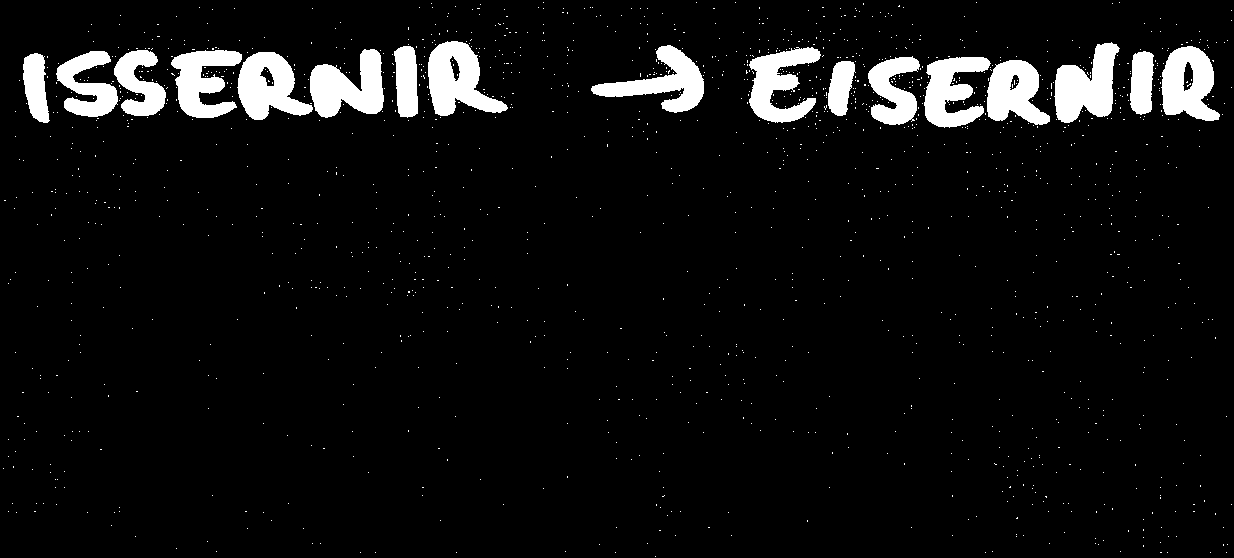 ISSERNIR → EISERNIR